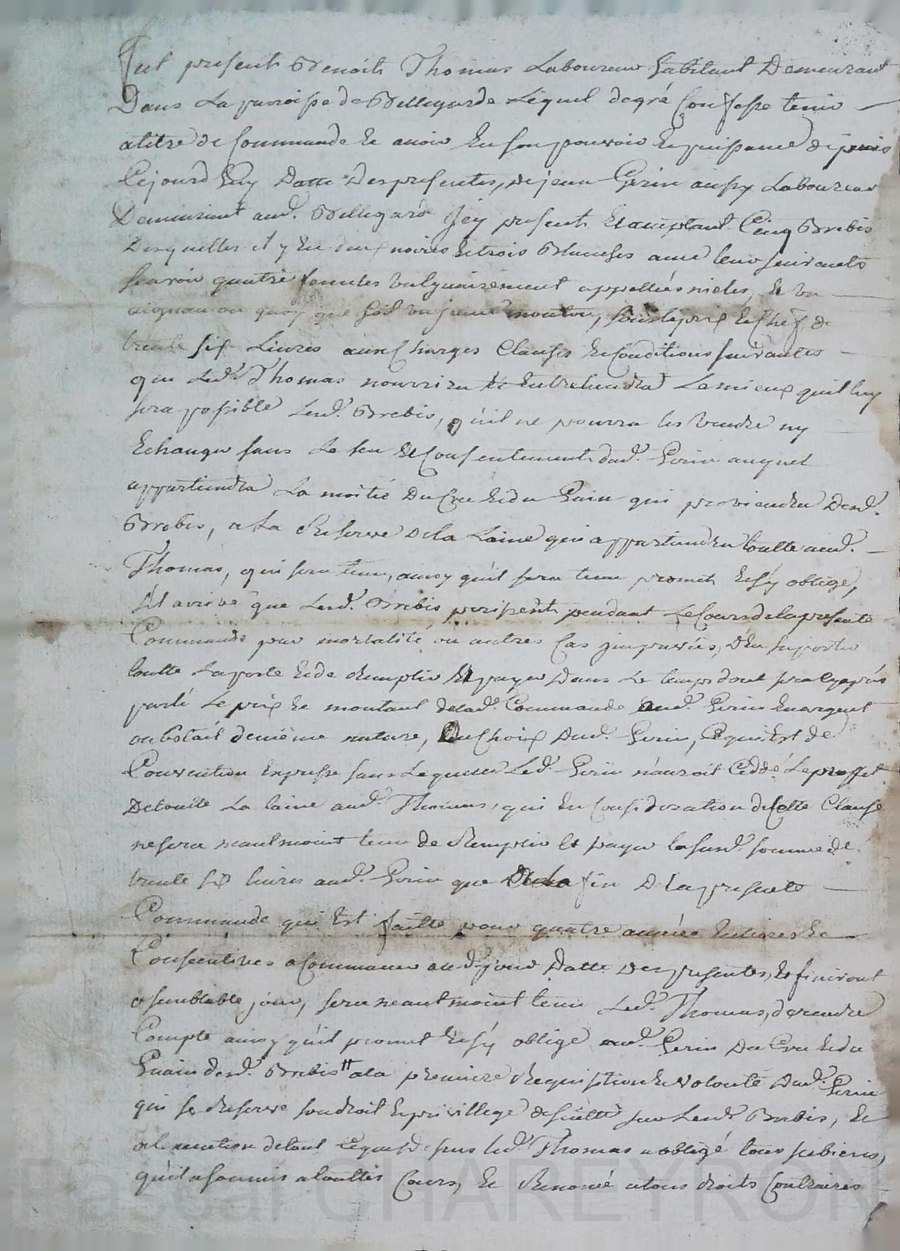 fut present Benoit Thomas Laboureur habitant Demeurant
Dans La paroisse de Bellegarde Lequel de gré Confesse tenir
a titre de Commande Et avoir En son pouvoir Et puissance depuis
Cejourd'huy Datte Des presentes, de jean Gerin aussy Laboureur
Demeurant aud. Bellegarde Jcy present Et acceptant Cinq Brebis
Desquelles il y En deux noires Et trois Blanches avec leur suivants
scavoir quatre femelles vulguairement appellées, Et un
ou quoy que soit un jeune mouton, sous le prix Et Chef de
trente six Livres aux Charges Clauses Et Conditions suivantes
que Led. Thomas nourrira Et Entretiendra Le mieux qu'il luy
sera possible Lesd. Brebis, qu'il ne pourra les vendre ny
Echanger sans Le seu Et Consentement dud. Gerin auquel
appartiendra La moitié Du Cru Et du Guin qui proviendra Desd.
Brebis, a La Reserve De la Laine qui appartiendra toutte aud.
Thomas, qui sera tenu, ainsy qu'il sera tenu promet Et s'y oblige,
s'il arrive que Lesd. Brebis perissent pendant Le Cours de la presente
Commande par mortalité ou autres Cas jmprevûs, d'En suporter
toutte La perte Et de Remplir Et payer Dans Le temps dont sera Cy après
parlé Le prix Et montant de lad. Commande aud. Gerin En argent
ou bétail de même nature, au Choix Dud. Gerin, Ce qui Est de
Convention Expresse sans Laquelle Led. Gerin n'auroit Ceddé Le proffit
De toutte La laine aud. Thomas, qui En Consideration de Cette Clause
ne sera neantmoint tenu de Remplir Et payer la susd. somme de
trente six livres aud. Gerin que De La fin De la presente
Commande qui Est faitte pour quatre années Entieres Et
Consecutives a Commencer aud. jour Datte Des presentes, Et finiront
a semblable jour, sera neantmoint tenu Led. Thomas, de rendre
Compte ainsy qu'il promet Et s'y oblige aud. Gerin Du Cru Et du
Guain desd. Brebis a la premiere Requisition Et volonté Dud. Gerin
qui se Reserve son droit Et privillege de suitte sur Lesd. Brebis, Et
a l'execution de tout Ce que d. sus led. Thomas a obligé tous ses biens,
qu'il a soumis a touttes Cours, Et Renoncé a tous droits Contraires
Pascal CHAREYRON